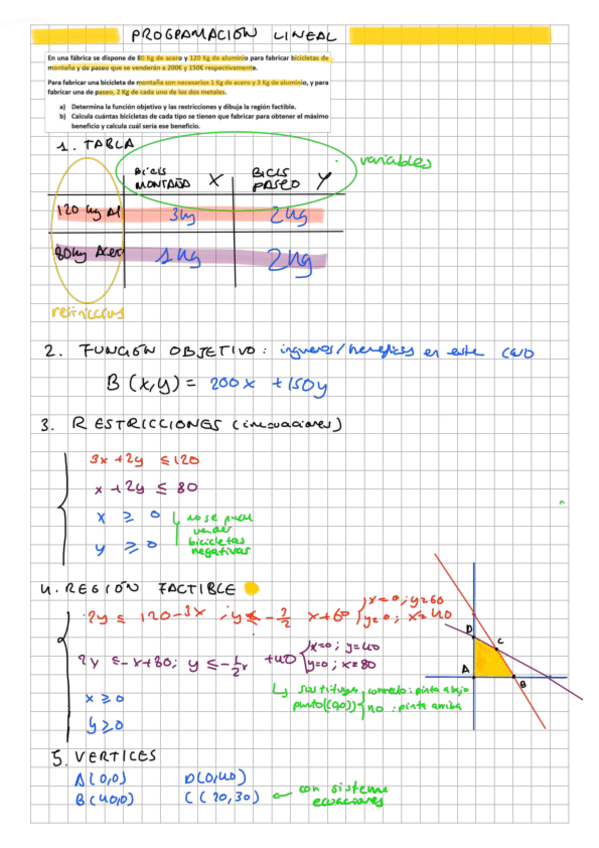 PROGRAMACIÓN LINEAL
En una fábrica se dispone de 80 Kg de acero y 120 Kg de aluminio para fabricar bicicletas de
montaña y de paseo que se venderán a 200€ y 150€ respectivamente.
Para fabricar una bicicleta de montaña son necesarios 1 Kg de acero y 3 Kg de aluminio, y para
fabricar una de paseo, 2 Kg de cada uno de los dos metales.
a) Determina la función objetivo y las restricciones y dibuja la región factible.
b) Calcula cuántas bicicletas de cada tipo se tienen que fabricar para obtener el máximo
beneficio y calcula cuál sería ese beneficio.
1. TABLA
variables
BICIS MONTAÑA X
BICIS PASEO Y
120 kg Al 3kg 2kg
80kg Acero 1kg 2kg
restricciones
2. FUNCIÓN OBJETIVO: ingresos/beneficios en este caso
B (x,y) = 200x + 150y
3. RESTRICCIONES (inecuaciones)
3x + 2y ≤ 120
x + 2y ≤ 80
x ≥ 0
y ≥ 0
no se pueden
vender
bicicletas
negativas
4. REGIÓN FACTIBLE
2y ≤ 120-3x ; y ≤ -3/2 x+60
x=0; y=60
y=0; x=40
2y ≤ -x+80; y ≤ -1/2x +40
x=0; y=40
y=0; x=80
sustituye
punto (0,0)
correcto: pinta abajo
no: pinta arriba
x ≥ 0
y ≥ 0
D
C
A
B
5. VERTICES
A(0,0) D(0,40)
B(40,0) C(20,30) ← con sistema
ecuaciones